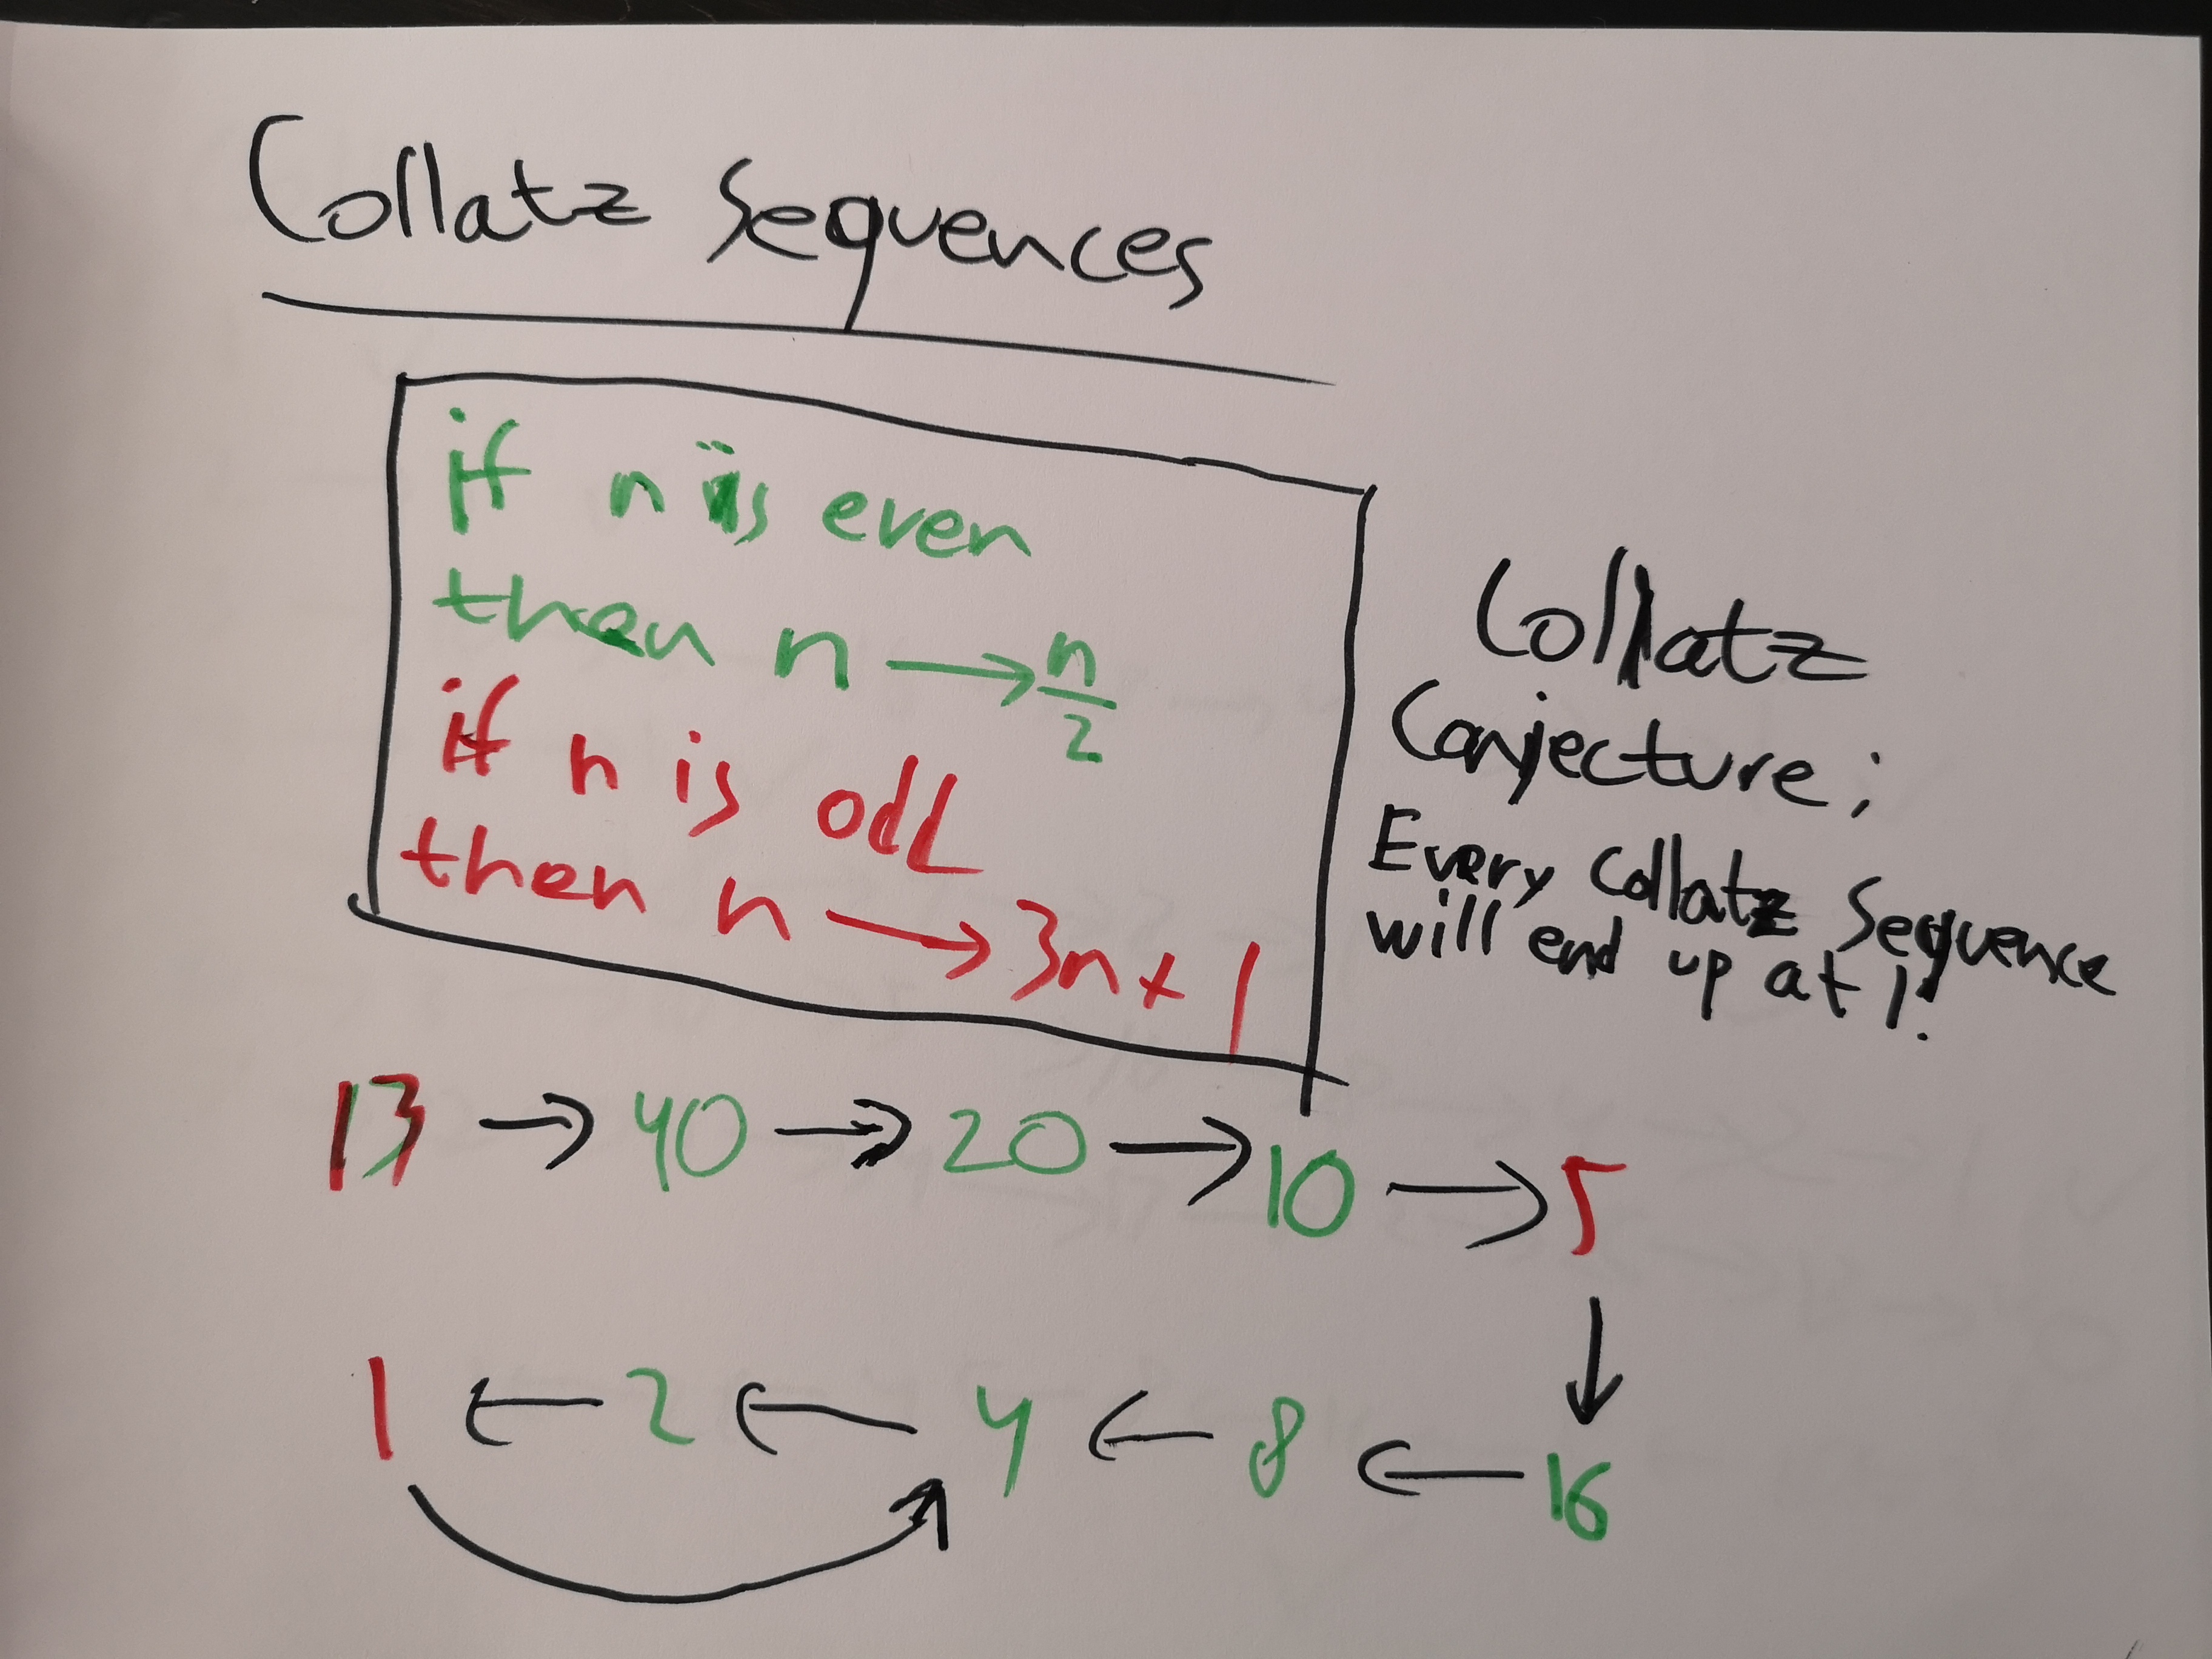 Collatz Sequences
if n is even
then n → n/2
if n is odd
then n → 3n+1
Collatz
Conjecture:
Every Collatz Sequence
will end up at 1!
13 → 40 → 20 → 10 → 5
↓
1 ← 2 ← 4 ← 8 ← 16